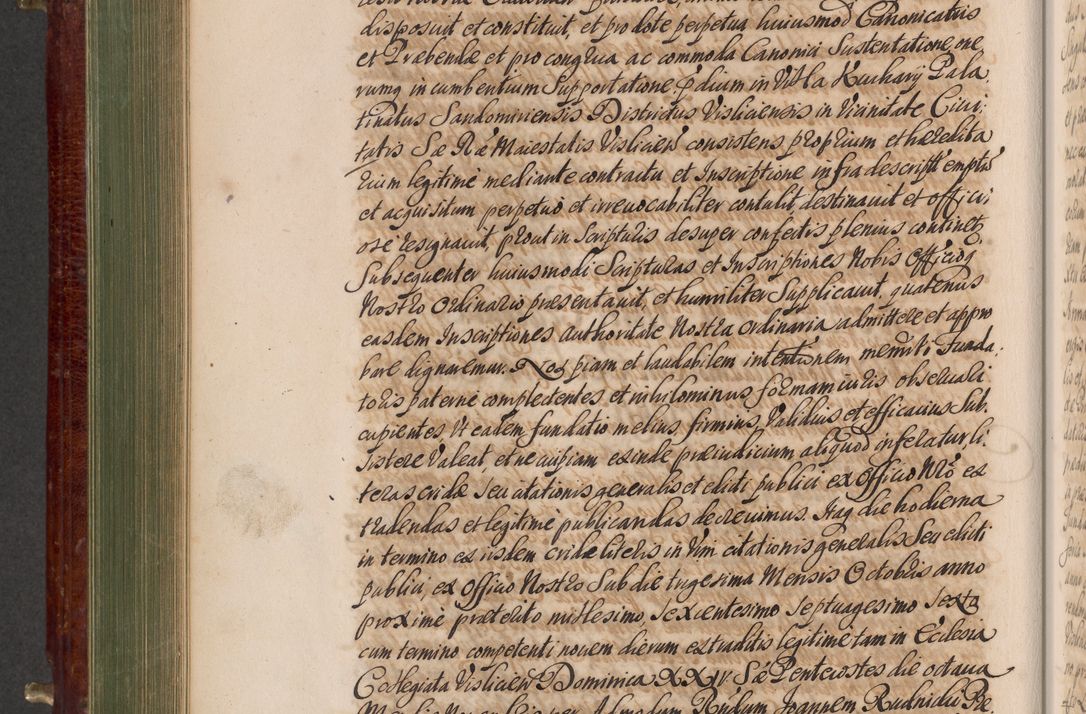 disposuit et constituit, et pro dote perpetua huiusmod Canonicatus
et Præbendæ et pro congrua ac commoda Canonici Sustentatione, one
rumq incumbentium Supportatione pdium in Villa Kuchary Pala
tinatus Sandomiriensis Districtus Visliciensis in Vicinitate Civi:
tatis Sæ Ræ Maiestatis Vislicien consistens proprium et hæredita
rium legitime mediante contractu et Inscriptione infra descripti emptũ
et acquisitum perpetuo et irrevocabiliter contulit destinavit et offici:
ose resignavit, prout in Scripturis desuper confectis plenius continet,
Subsequenter huiusmodi Scripturas et Inscriptiones Nobis Officioq
Nostro Ordinario presentavit, et humiliter Supplicavit, quatenus
easdem Inscriptiones authoritate Nostra Ordinaria admittere et appro
bare dignaremur. Nos piam et laudabilem intentionem memrti Funda:
toris paterne complectentes et nihilominus formam iuris observari
cupientes, Vt eadem fundatio melius firmius, Validius et efficacius Sub
sistere Valeat, et ne cuipiam exinde præiudicium aliquod inferatur li:
teras cridæ Seu citationis generalis et edicti publici ex Officio Nro ex
tradendas et legitime publicandas decrevimus. Itaq die hodierna
in termino ex iisdem cridæ literis in Vim citationis generalis Seu edicti
publici, ex Officio Nostro Sub die trigesima Mensis Octobris anno
proxime præterito millesimo, Sexcentesimo Septuagesimo Sexto
cum termino competenti novem dierum extraditis legitime tam in Ecclesia
Collegiata Vislicien Dominica XXIV Sæ Pentecostes die octava
Mensis Novembris per Admodum Rndum Joannem Rudnicki Præ